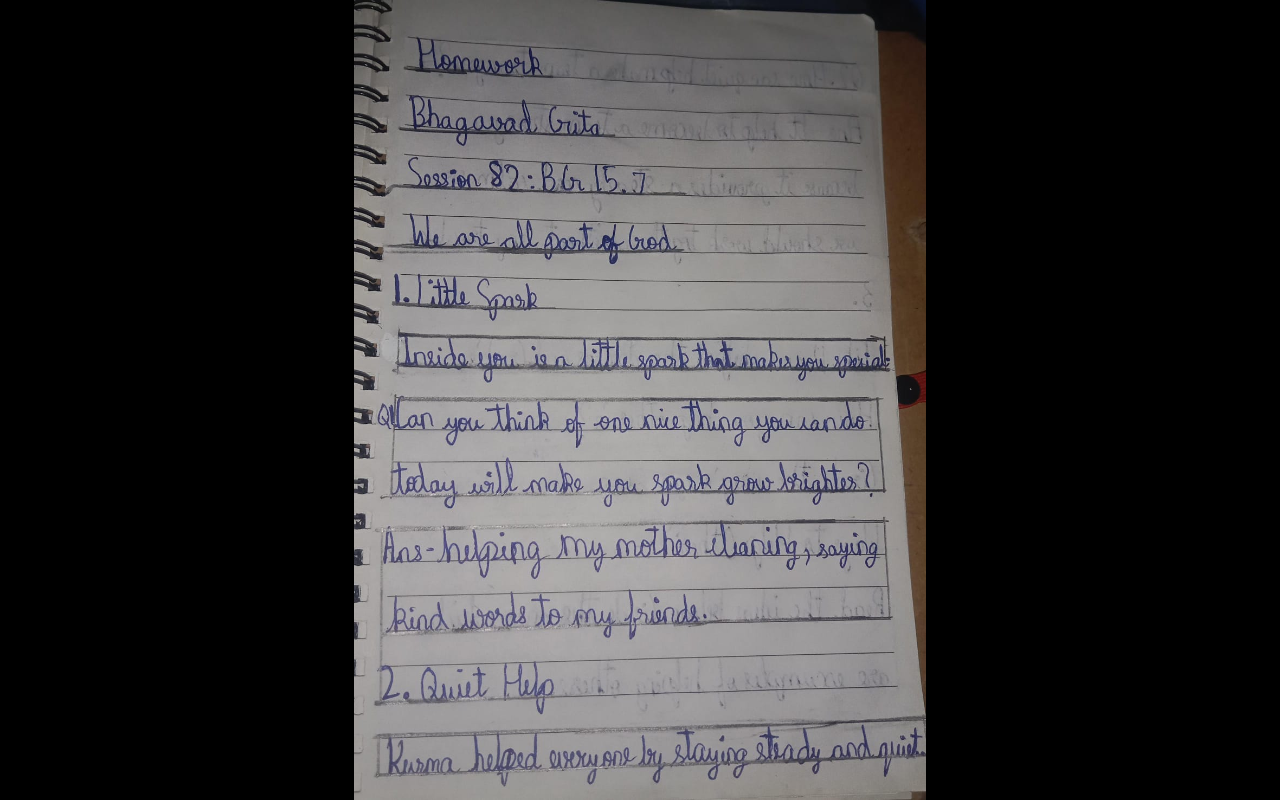 Homework
Bhagavad Gita
Session 82: BG 15.7
We are all part of God
1. Little Spark
Inside you is a little spark that makes you special.
Q1 Can you think of one nice thing you can do
today will make you spark grow brighter?
Ans- helping my mother cleaning, saying
kind words to my friends.
2. Quiet Help
Kurma helped everyone by staying steady and quiet.